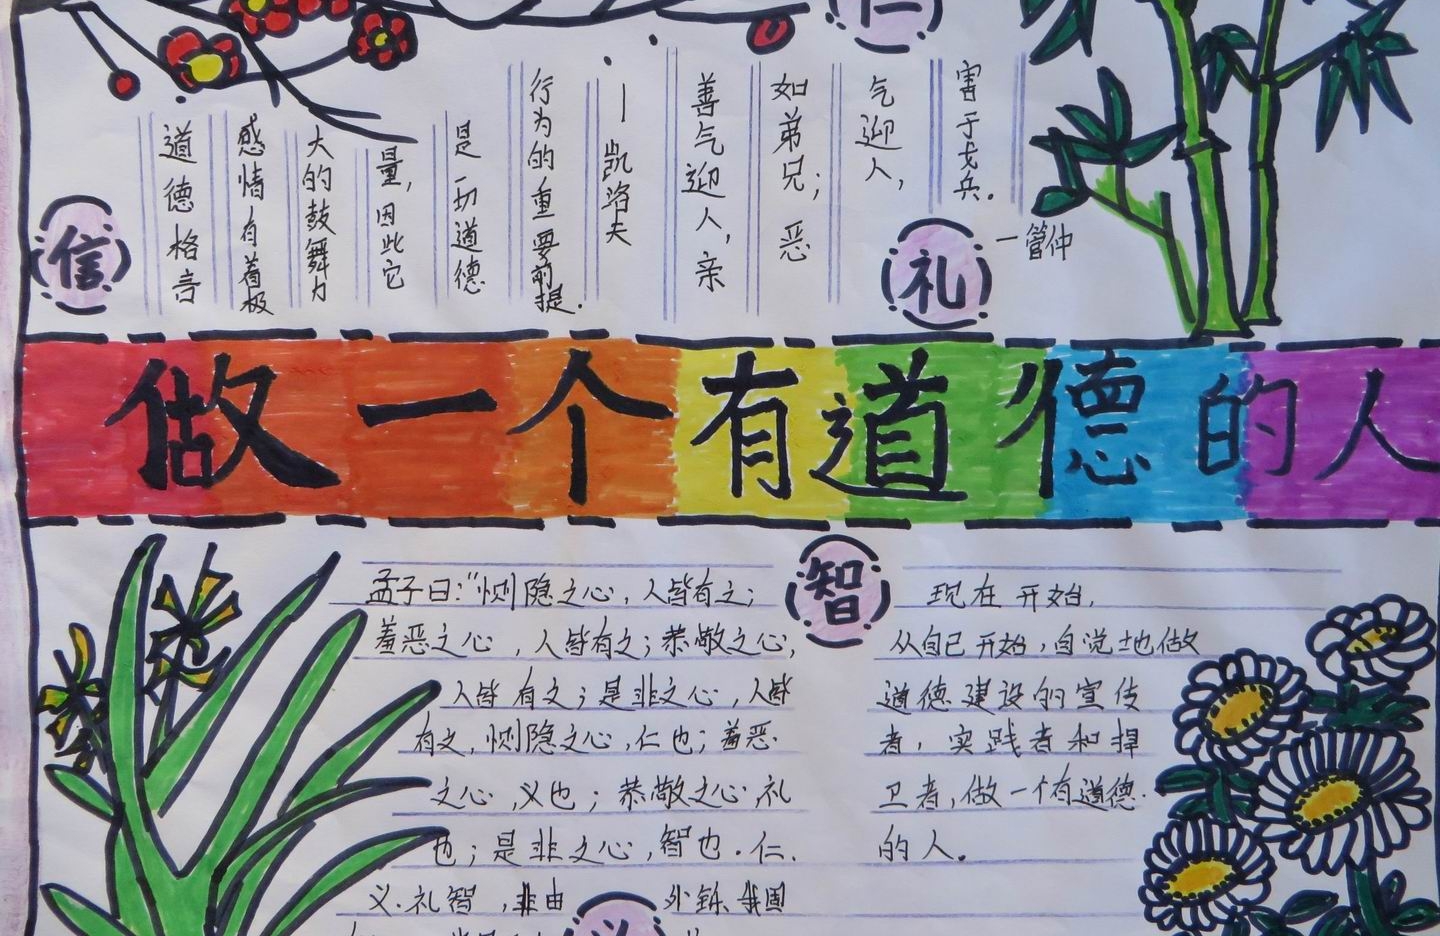 仁
道德格言
感情有着极
大的鼓舞力
量,因此它
是一切道德
行为的重要前提.
—凯洛夫
善气迎人,亲
如弟兄;恶
气迎人,
害于戈兵.
一管仲
信
礼
做一个有道德的人
智
孟子曰:"恻隐之心,人皆有之;
羞恶之心,人皆有之;恭敬之心,
人皆有之;是非之心,人皆
有之,恻隐之心,仁也;羞恶
之心,义也;恭敬之心,礼
也;是非之心,智也.仁.
义.礼智,非由外铄我
现在开始,
从自己开始,自觉地做
道德建设的宣传
者,实践者和捍
卫者,做一个有道德
的人.
义